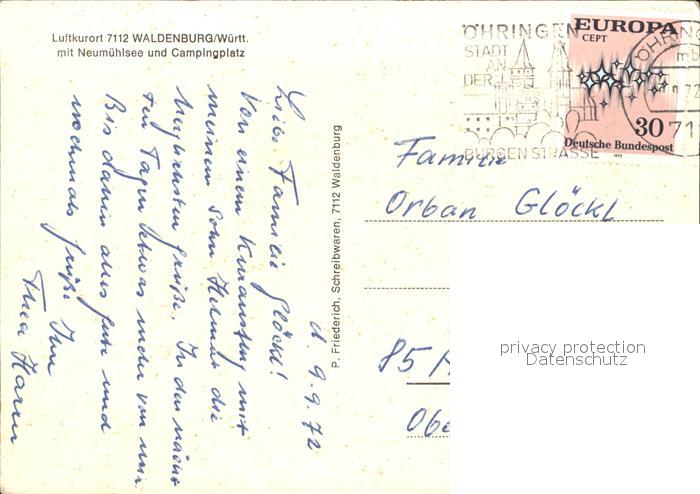 Luftkurort 7112 WALDENBURG/Württ.
mit Neumühlsee und Campingplatz
d. 9.9.72
Liebe Familie Glöckl!
Von einem Kurausflug mit
meinem Sohn Helmut die
herzlichsten Grüße. In den nächs
ten Tagen etwas mehr von mir.
Bis dahin alles Gute und
nochmals Grüße Ihre
Thea
P. Friederich, Schreibwaren, 7112 Waldenburg
ÖHRINGEN
STADT
AN
DER
BURGENSTRASSE
EUROPA
CEPT
30
Deutsche Bundespost
ÖHRING
71
Familie
Orban Glöckl
85
Obe
privacy protection
Datenschutz